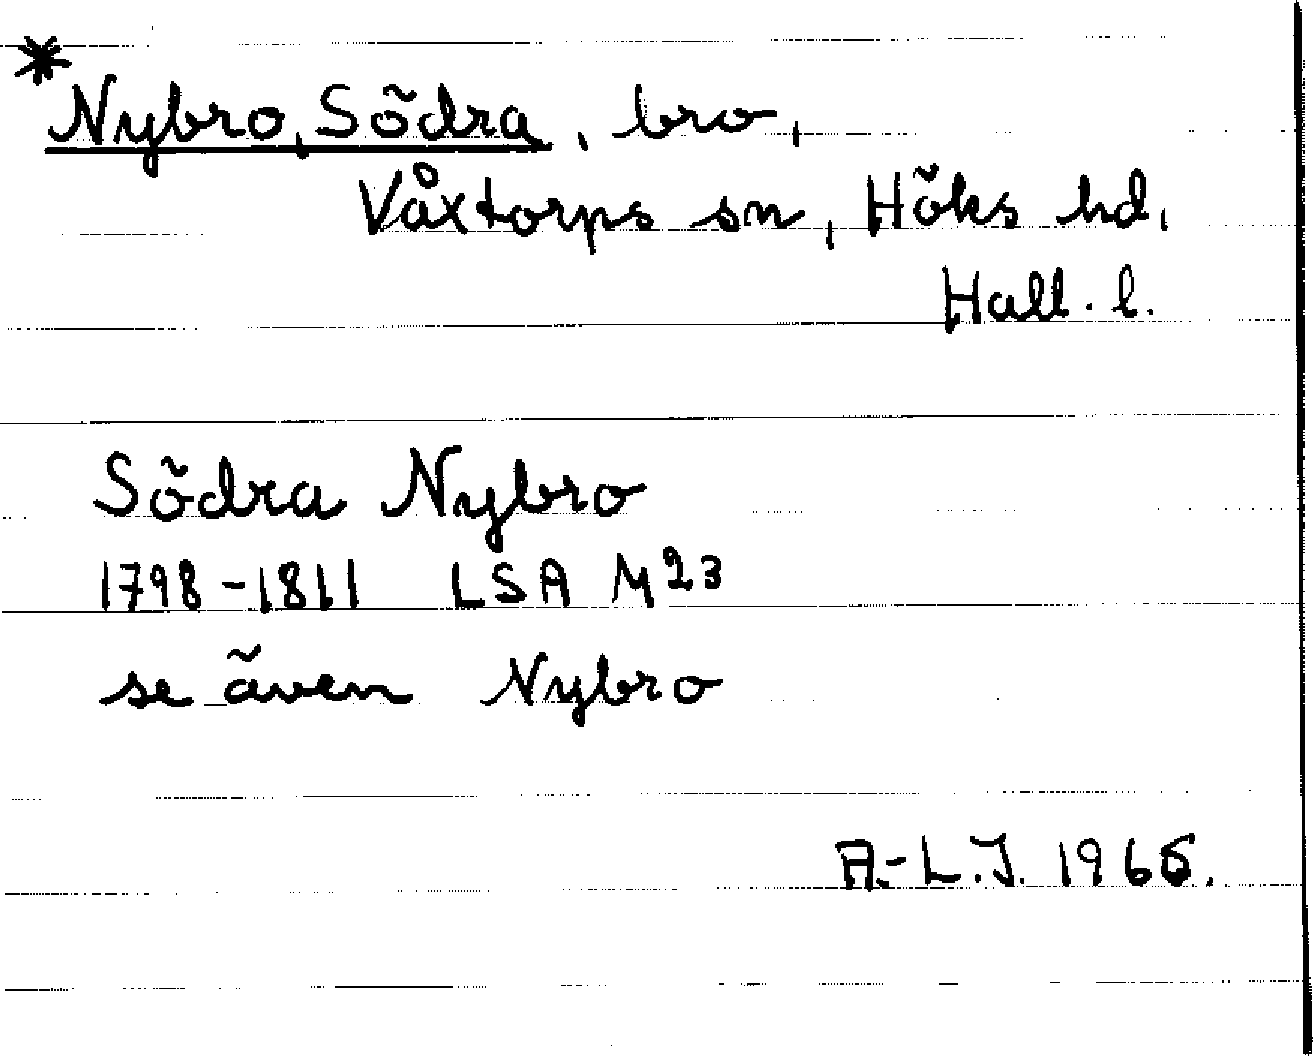 *Nybro, Södra, bro,
Våxtorps sn, Höks hd,
Hall. l.
Södra Nybro
1798-1811 LSA M23
se även Nybro
A.-L.J. 1966.